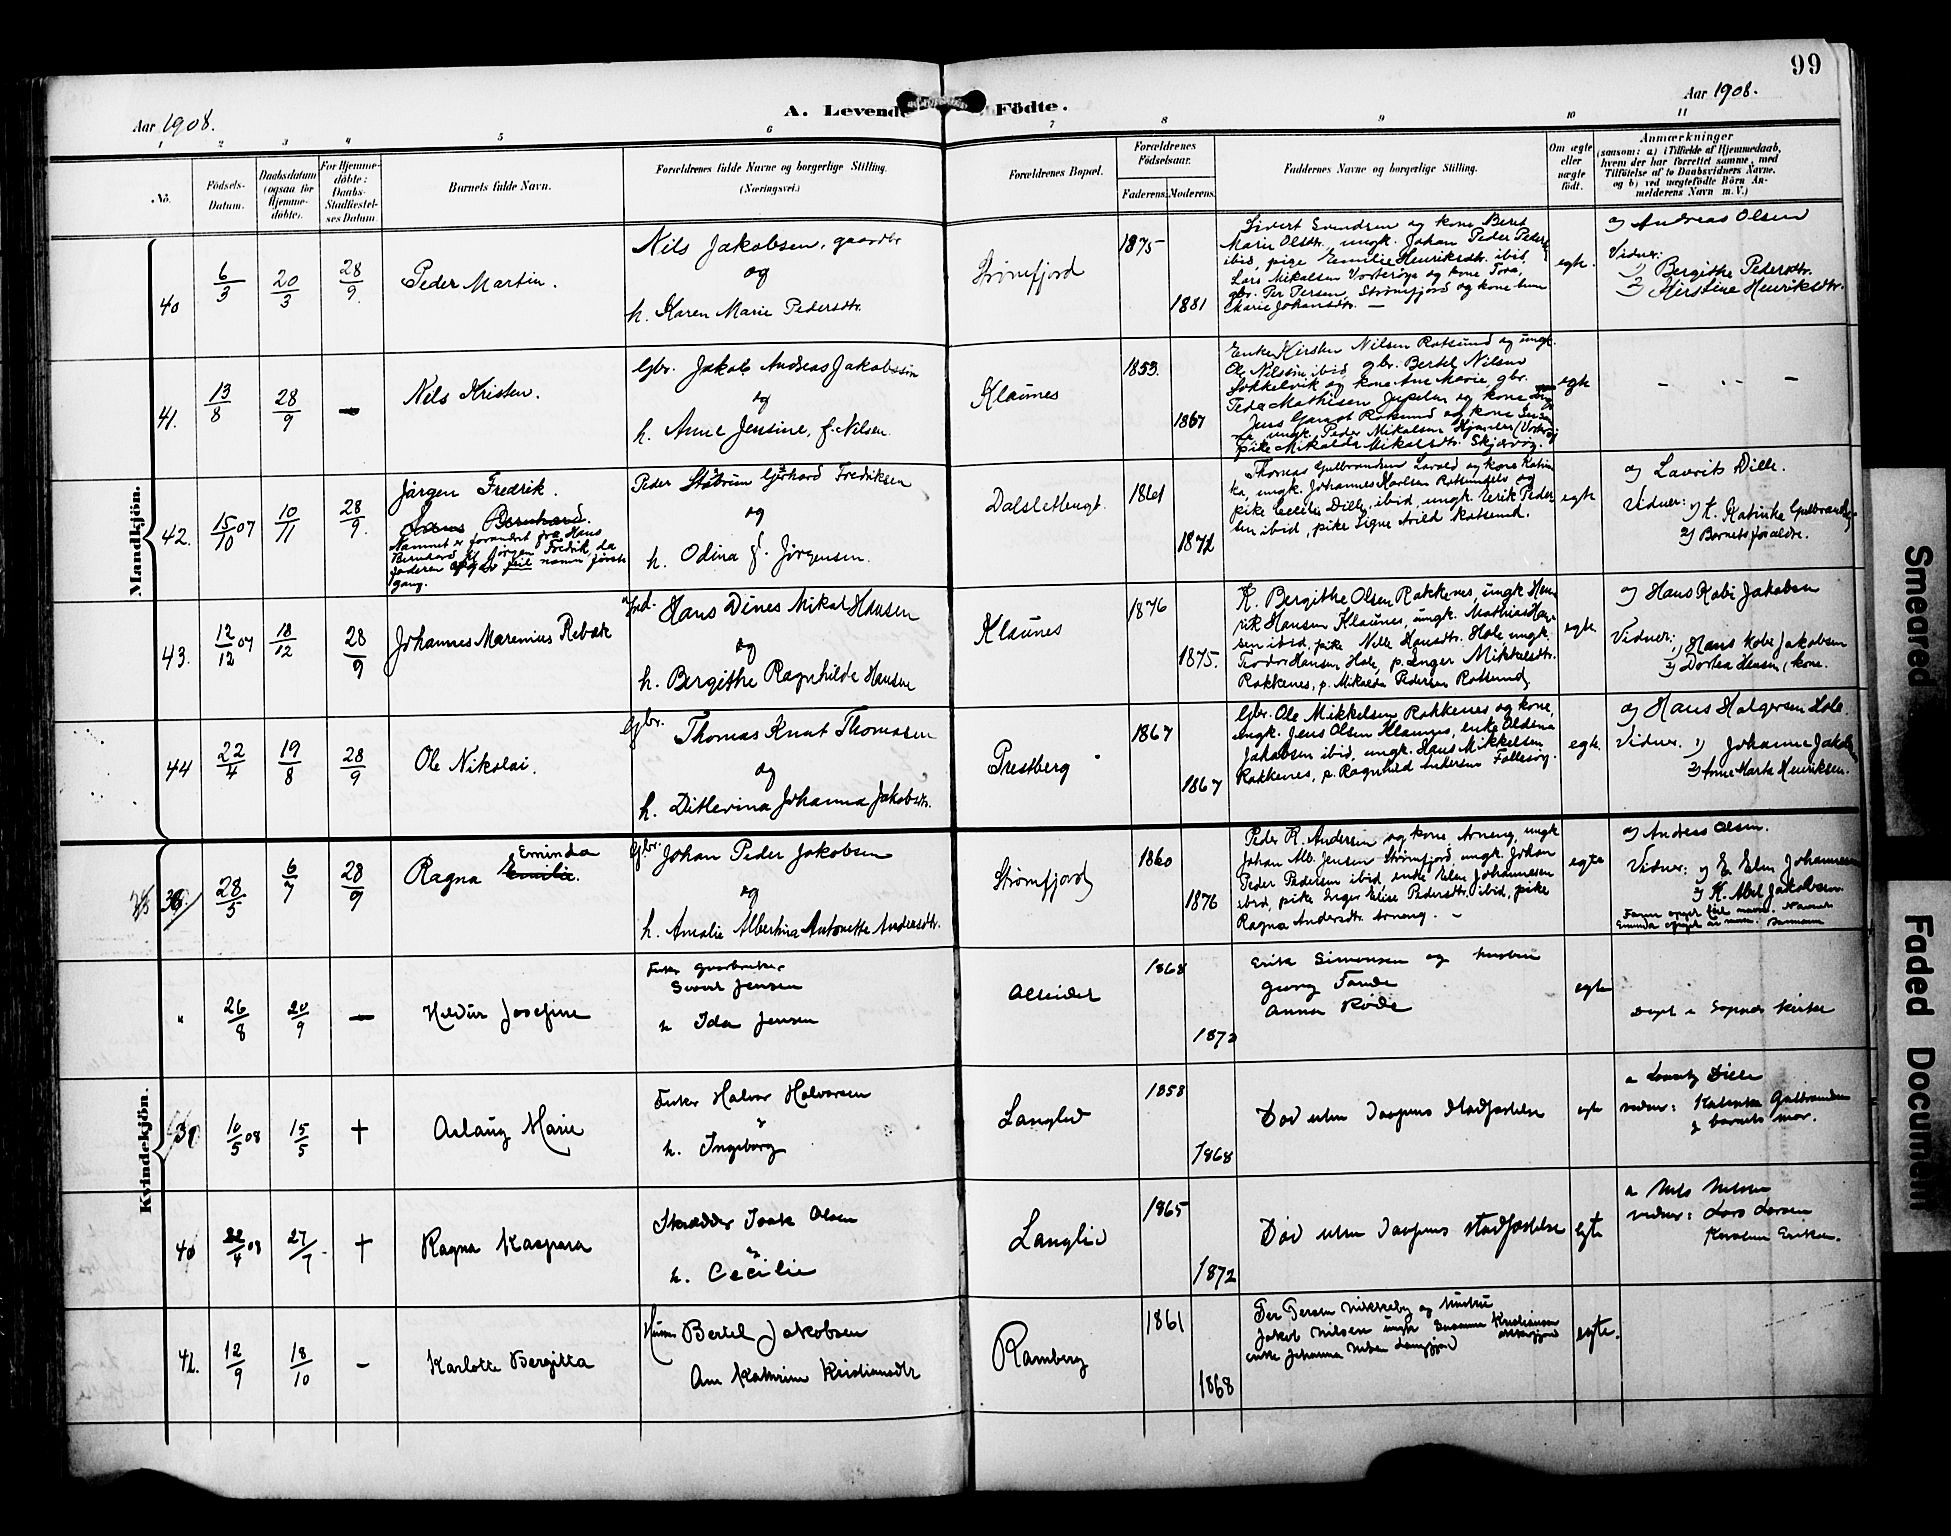 99
Aar 1908.
A. Levende Födte.
Aar 1908.
1 2 3 4 5 6 7 8 9 10 11
No.
Födsels-
Datum.
Daabsdatum
(ogsaa for
Hjemme-
döbte).
For Hjemme-
döbte:
Daabs-
Stadfæstel-
ses Datum
Barnets fulde Navn.
Forældrenes fulde Navne og borgerlige Stilling.
(Næringsvei.)
Forældrenes Bopæl.
Forældrenes
Födselsaar.
Faderens. Moderens.
Faddernes Navne og borgerlige Stilling.
Om ægte
eller
uægte
født.
Anmærkninger
(saasom: a) i Tilfælde af Hjemmedaab,
hvem der har forrettet samme, med
Tilföielse af to Daabsvidners Navne,
og b) ved uægtefödte Börn An-
melderens Navn m. V.)
Mandkjön.
40
6/3
20/3
28/9.
Peder Martin.
Nils Jakobsen, gaardbr
og
h. Karen Marie Pedersdtr.
Strømfjord
1875
1881
Sivert Svendsen og kone Beret
Marie Olsdtr., ungk. Johan Peder
ibid, pige Emilie Henriksdtr. ibid,
Lars Mikalsen Vorterøy og kone Tora,
gbr. Per Persen, Strømfjord og kone
Marie Johansdtr. —
egte.
a) Andreas Olsen
Vidner:
1) Bergithe Pedersdtr.
2) Kirstine Henriksdtr.
41.
13/8
28/9
—
Nils Kristen.
Gbr. Jakob Andreas Jakobssen
og
h. Anne Jensine, f. Nilsen.
Klaunes
1853.
1867
Enke Kirsten Nilsen Rotsund og ungk.
Ole Nilsen ibid, gbr. Bertel Nilsen
Sokkelvik og kone Ane Marie, gbr.
Peder Mathisen og kone
Jens Rotsund og kone
ungk. Peder Mikalsen
pike Mikalda Mikalsdtr. Skjærvøy.
egte
— " —
42.
15/10 07
10/11
28/9.
Jörgen Fredrik.
Hans Bernhard.
Navnet er forandret fra Hans
Bernhard til Jörgen Fredrik, da
faderen opgav feil navn første
gang.
Peder Gjerhard Fredriksen
og
h. Odina f. Jørgensen.
Dalsletlengt.
1861
1872
Thomas Gulbrandsen og kone Katin
ka, ungk. Johannes Karlsen Rotsundelv og
pike Cecilie Dille, ibid, ungk. Erik Peder
sen ibid, pike Signe Arild Rotsund.
egte
a) Lavrits Dille.
Vidner: 1) K. Katinka Gulbrandsen
2) Barnets forældre.
43.
12/12 07
18/12
28/9
Johannes Marenius Rebak
Ind. Hans Dines Nikal Hansen
og
h. Bergithe Ragnhilde Hansen
Klaunes
1876
1875.
K. Bergithe Olsen Rakkenes, ungk Hen
rik Hansen Klaunes, ungk. Mathias Han
sen ibid, pike Nille Hansdtr. Hole, ungk.
Teodor Hansen Hole, p. Inger Mikkelsdtr.
Rakkenes, p. Mikalda Pedersen Rotsund,
egte
a) Hans Kabi Jakobsen
Vidner: 1) Hans Kobi Jakobsen
2) Dortea Hansen, kone.
44
22/4
19/8
28/9
Ole Nikolai.
Gbr.
Thomas Knut Thomasen
og
h. Ditlevina Johanna Jakobsdtr.
Prestberg
1867
1867
Gbr. Ole Mikkelsen Rakkenes og kone,
ungk. Jens Olsen Klaunes, enke Oldine
Jakobsen ibid, ungk. Hans Mikkelsen
Rakkenes, p. Ragnhild Andersen Follesøy.
egte.
a) Hans Holgersen Hole
Vidner. 1) Johanne Jakobs
2) Anne Marta Henriksen.
Kvindekjön.
28/5
6/7
28/9
Eminda
Ragna Emilie.
Gbr. Johan Peder Jakobsen
og
h. Amalie Albertina Antonette Andersdtr.
Strømfjord
1860
1876
Peder R. Andersen og kone Arneng, ungk
Johan Alb. Jensen Strømfjord, ungk. Johan
Peder Pedersen ibid, enke Elen Johannesen
ibid, pike Inger Elise Pedersdtr. ibid, pike
Ragna Andersdtr. Arneng. —
egte
a) Andreas Olsen.
Vidner: 1) E. Elen Johannesen
2) K. Abel Jakobsen
Faren opgav feil navn.
"
26/8
20/9
—
Hildur Josefine
Fisker gaardbruker
Sivert Jensen
h Ida Jensen
1868
1872
Erik Simonsen og hustru
Georg
Anna Røde
egte
Døpt i Sopnes kirke
10/5 08
15/5
†
Aslaug Marie
Fisker Halvor Halvorsen
h. Ingeborg
Langlid
1858
1868
Død uten daapens stadfæstelse
egte
a Lauritz Dille
vidner: Katinka Gulbrandsen
og barnets mor.
22/4 08
27/7.
†
Ragna Kaspara
Skrædder Isak Olsen
og
h. Cecilie
Langlid
1865
1872
Død uten daapens stadfæstelse
Egte
a Nils Nilsen
vidner: Lars Larsen
42.
12/9
18/10
—
Karlotte Bergitta
Bertel Jakobsen
Ane Kathrine Kristiansdtr
Ramberg
1861
1868
Per Persen Nikkeby og hustru
Jakob Nilsen Susanne Kristiansen
enke Johanna Nilsen Langfjord
egte.
Smeared
Faded Document